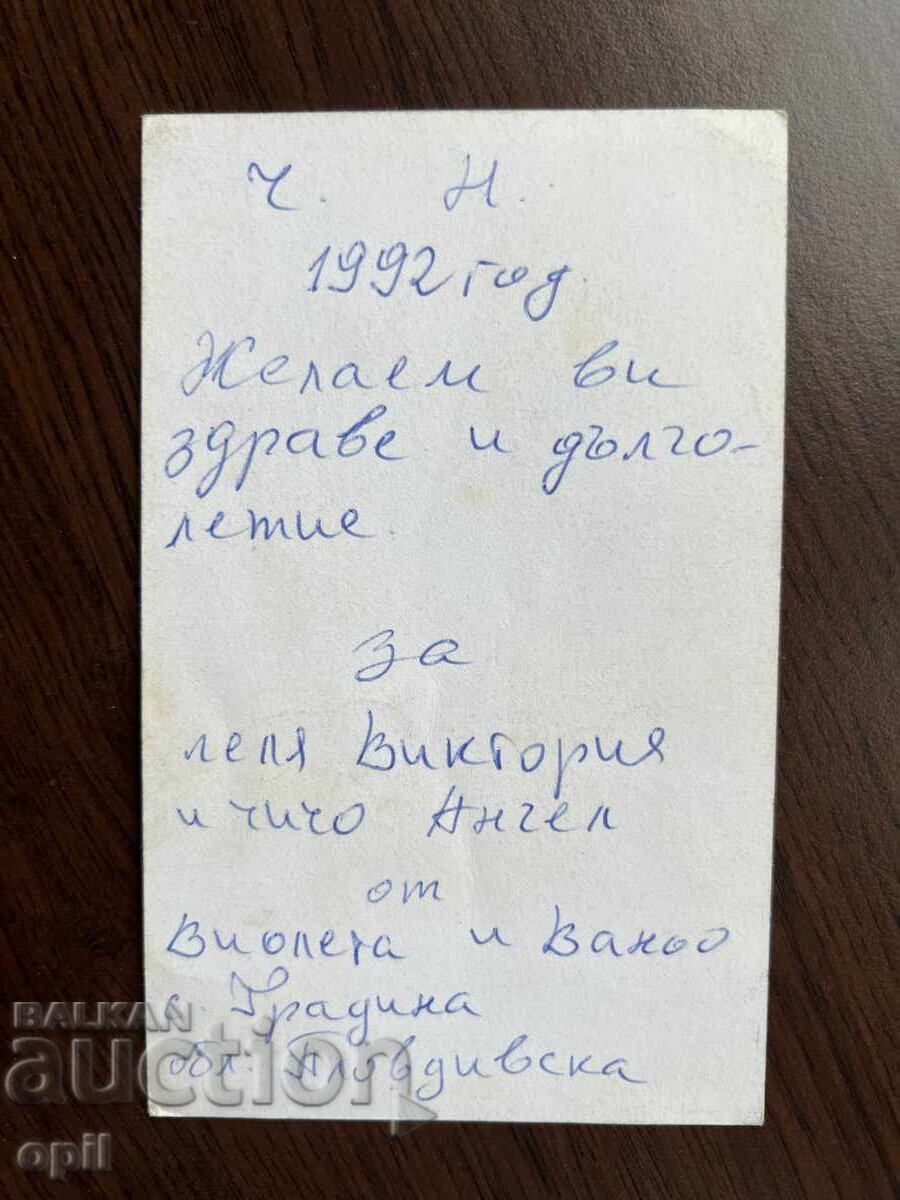 Ч. Н.
1992 год.
Желаем ви
здраве и дълго-
летие.
за
леля Виктория
и чичо Ангел
от
Виолета и Ваньо
с. Градина
обл: Пловдивска
BALKAN
auction
opil